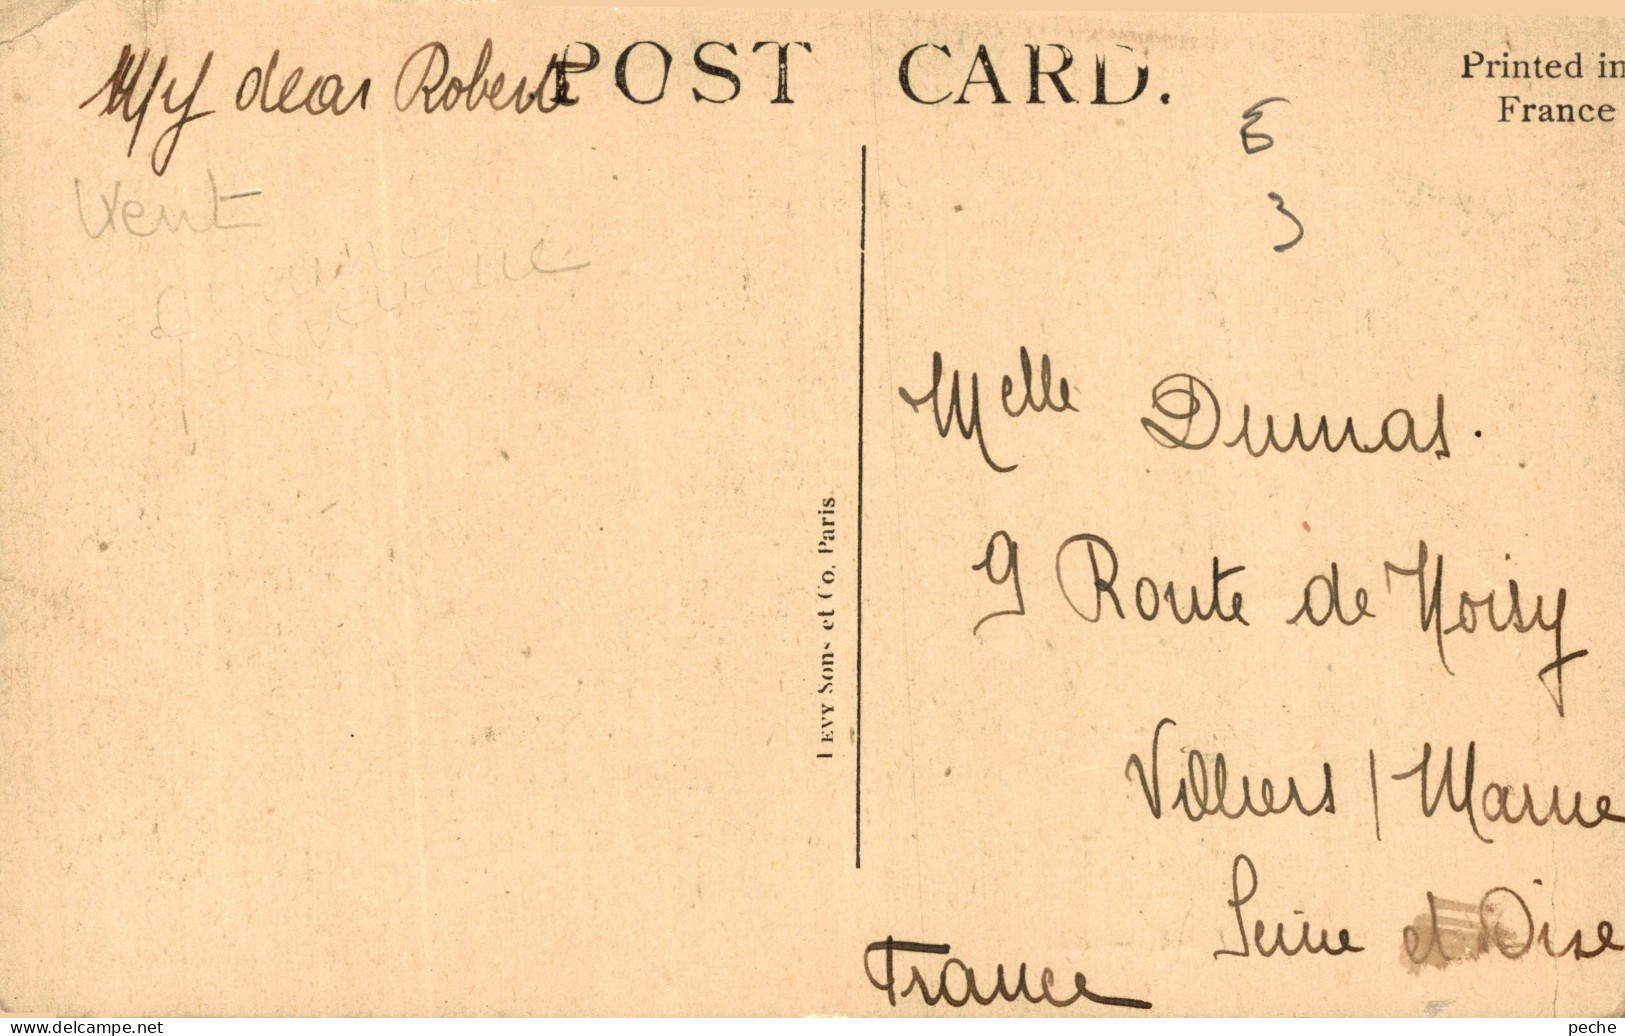 POST CARD.
Printed in
France
My dear Robert
Kent
6
3
Melle Dumas.
9 Route de Noisy
Villiers / Marne
Seine et Oise
France
LEVY Sons et Co. Paris
peche